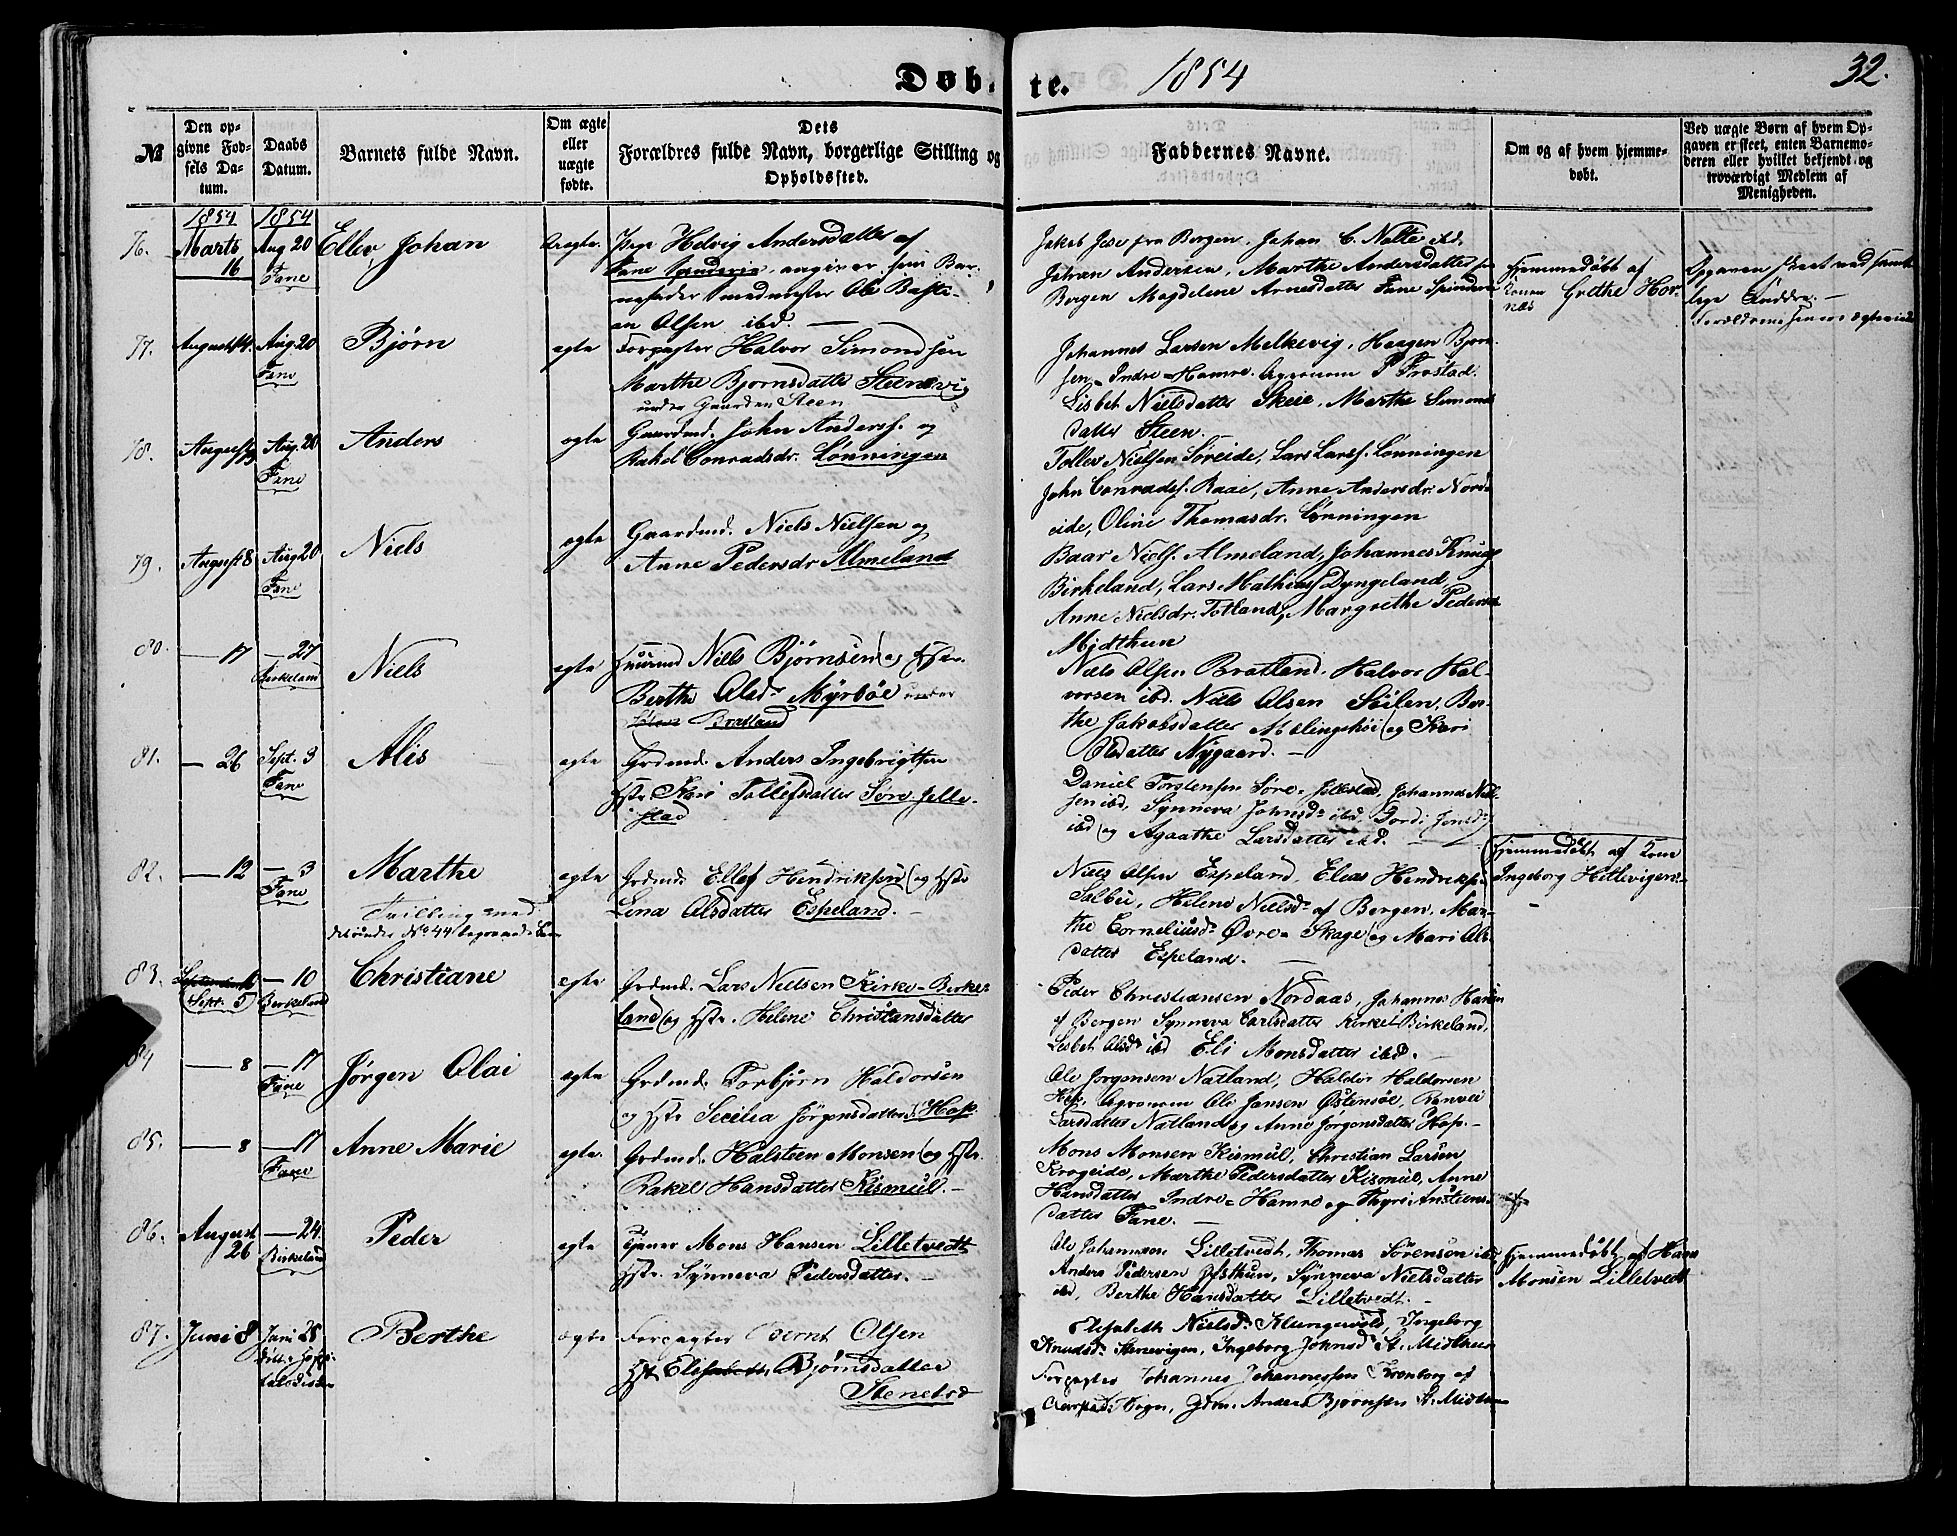 Døbte. 1854 32.
№
Den opgivne Fødsels Datum.
Daabs Datum.
Barnets fulde Navn.
Om ægte eller uægte fødte.
Dets Forældres fulde Navn, borgerlige Stilling og Opholdssted.
Faddernes Navne.
Om og af hvem hjemmedøbt.
Ved uægte Børn af hvem Opgaven er skeet, enten Barnemoderen eller hvilket bekjendt og troværdigt Medlem af Menigheden.
1854 1854
76. Marts 16 Aug 20 Fane Ellev Johan uægte.
Pige Helvig Andersdatter af
Fane Spinderie, angiver som Bar-
nefader Smedmester Ole Basti-
an Olsen ibd. —
Jakob Jese fra Bergen, Johan C. Nolte ibd.
Johan Andersen, Marthe Andersdatter fra
Bergen Magdelene Arnesdatter Fane Spinderie
Hjemmedøbt af
Konen Grethe Hor-
næs
Opgaven skeet ved samt-
lige Faddre. —
77. August 4. Aug. 20 Fane Bjørn ægte
Forpagter Halvor Simondsen
Marthe Bjornsdatter Steensvig
under Gaarden Steen
Johannes Larsen Melkevig, Haagen Bjorn-
sen Indre-Hamre. Agronom P Frostad.
Lisbet Nielsdatter Skeie, Marthe Simons
datter Steen.
78. August 9 Aug. 20 Fane Anders ægte
Gaardmd. John Anders. og
Rakel Conradsdr. Lønningen
Tollev Nielsen Søreide, Lars Larss. Lønningen
John Conrads. Raae, Anne Andersdr. Nord-
eide, Oline Thomasdr. Lønningen
79. August 8 Aug 20 Fane Niels ægte
Gaardmd. Niels Nielsen og
Anne Pedersdr Almeland
Baar Niels. Almeland, Johannes Knuds
Birkeland, Lars Mathias Dyngeland,
Anne Nielsdr. Totland, Margrethe Peders
Midthun
80. — 17 — 27 Birkeland Niels ægte
Huusmd Niels Bjørnsen og Hstr.
Berthe Olsdr Myrbøe under
Bratland
Niels Olsen Bratland. Halvor Hal-
vorsen ibd. Niels Olsen Seilen, Ber-
the Jakobsdatter Mølingshøi og Kari
Olsdatter Nygaard. —
81. — 26 Sept. 3 Fane Alis ægte
Grdmd. Anders Ingebrigtsen
Hstr. Kari Tollefsdatter Søre Jelle-
stad
Daniel Torstensen Søre-Jellestad, Johannes Niel-
sen ibd, Synneva Johnsdr ibd, Jonsdr
ibd og Agaathe Larsdatter ibd. —
82. — 12 — 3 Fane Marthe ægte
Tvilling med
det under No 44
Grdmd. Ellef Hendriksen og Hstr
Lena Olsdatter Espeland. —
Niels Olsen Espeland, Elias Hendriks.
Sælbu, Helene Nielsdr af Bergen, Mar-
the Corneliusdr Øvre Skage og Mari Ols-
datter Espeland. —
Hjemmedøbt af Kone
Ingeborg Hellevigen.
83. Sept. 5 — 10 Birkeland Christiane ægte
Grdmd. Lars Nielsen Kirke-Birke-
land og Hstr. Helene Christiansdatter
Peder Christiansen Nordaas, Johannes Hansen
af Bergen Synneva Carlsdatter Kirke Birkeland,
Lisbet Olsdr ibd Eli Monsdatter ibd. —
84 — 8 — 17 Fane Jørgen Olai ægte
Grdmd. Torbjørn Haldorsen
og Hstr Secilia Jørgensdatter Hop.
Ole Jorgensen Natland, Haldor Haldorsen
Hop. Agronom Ole Jansen Østensøe, Ranvei
Larsdatter Natland og Anne Jørgensdatter Hop. —
85. — 8 — 17 Fane Anne Marie ægte.
Grdmd. Halsteen Monsen og Hstr.
Rakel Hansdatter Kismul. —
Mons Monsen Kismul, Christian Larsen
Krogeide, Marthe Pedersdatter Kismul, Anne
Hansdatter Indre-Hamre og Thyri Anstiens
datter Fane. —
86. August 26 — 24. Birkeland Peder ægte
Tjener Mons Hansen Lilletvedt
Hstr. Synneva Pedersdatter. —
Ole Johannsen Lilletvedt, Thomas Sørensen ibd,
Anders Pedersen Østhun, Synneva Nielsdatter
ibd, Berthe Hansdatter Lilletvedt. —
Hjemmedøbt af Hans
Monsen Lilletvedt
87. Juni 8 Juni 25 Berthe ægte
Forpagter Bernt Olsen
Hstr. Elisabeth Bjørnsdatter
Stenetrø
Elisabeth Nielsdr Klungevold, Ingeborg
Knudsdr Stenevigen, Ingeborg Johnsd St. Midthun
Forpagter Johannes Johannessen Kronborg af
Sogn, Grdm. Anders Bjørnsen St. Midthun